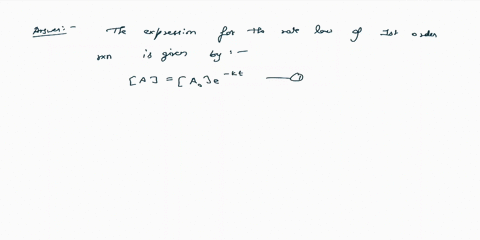 Answer:- The expression for the rate law of 1st order
rxn is given by :-
[A] = [A₀] e^-kt —①